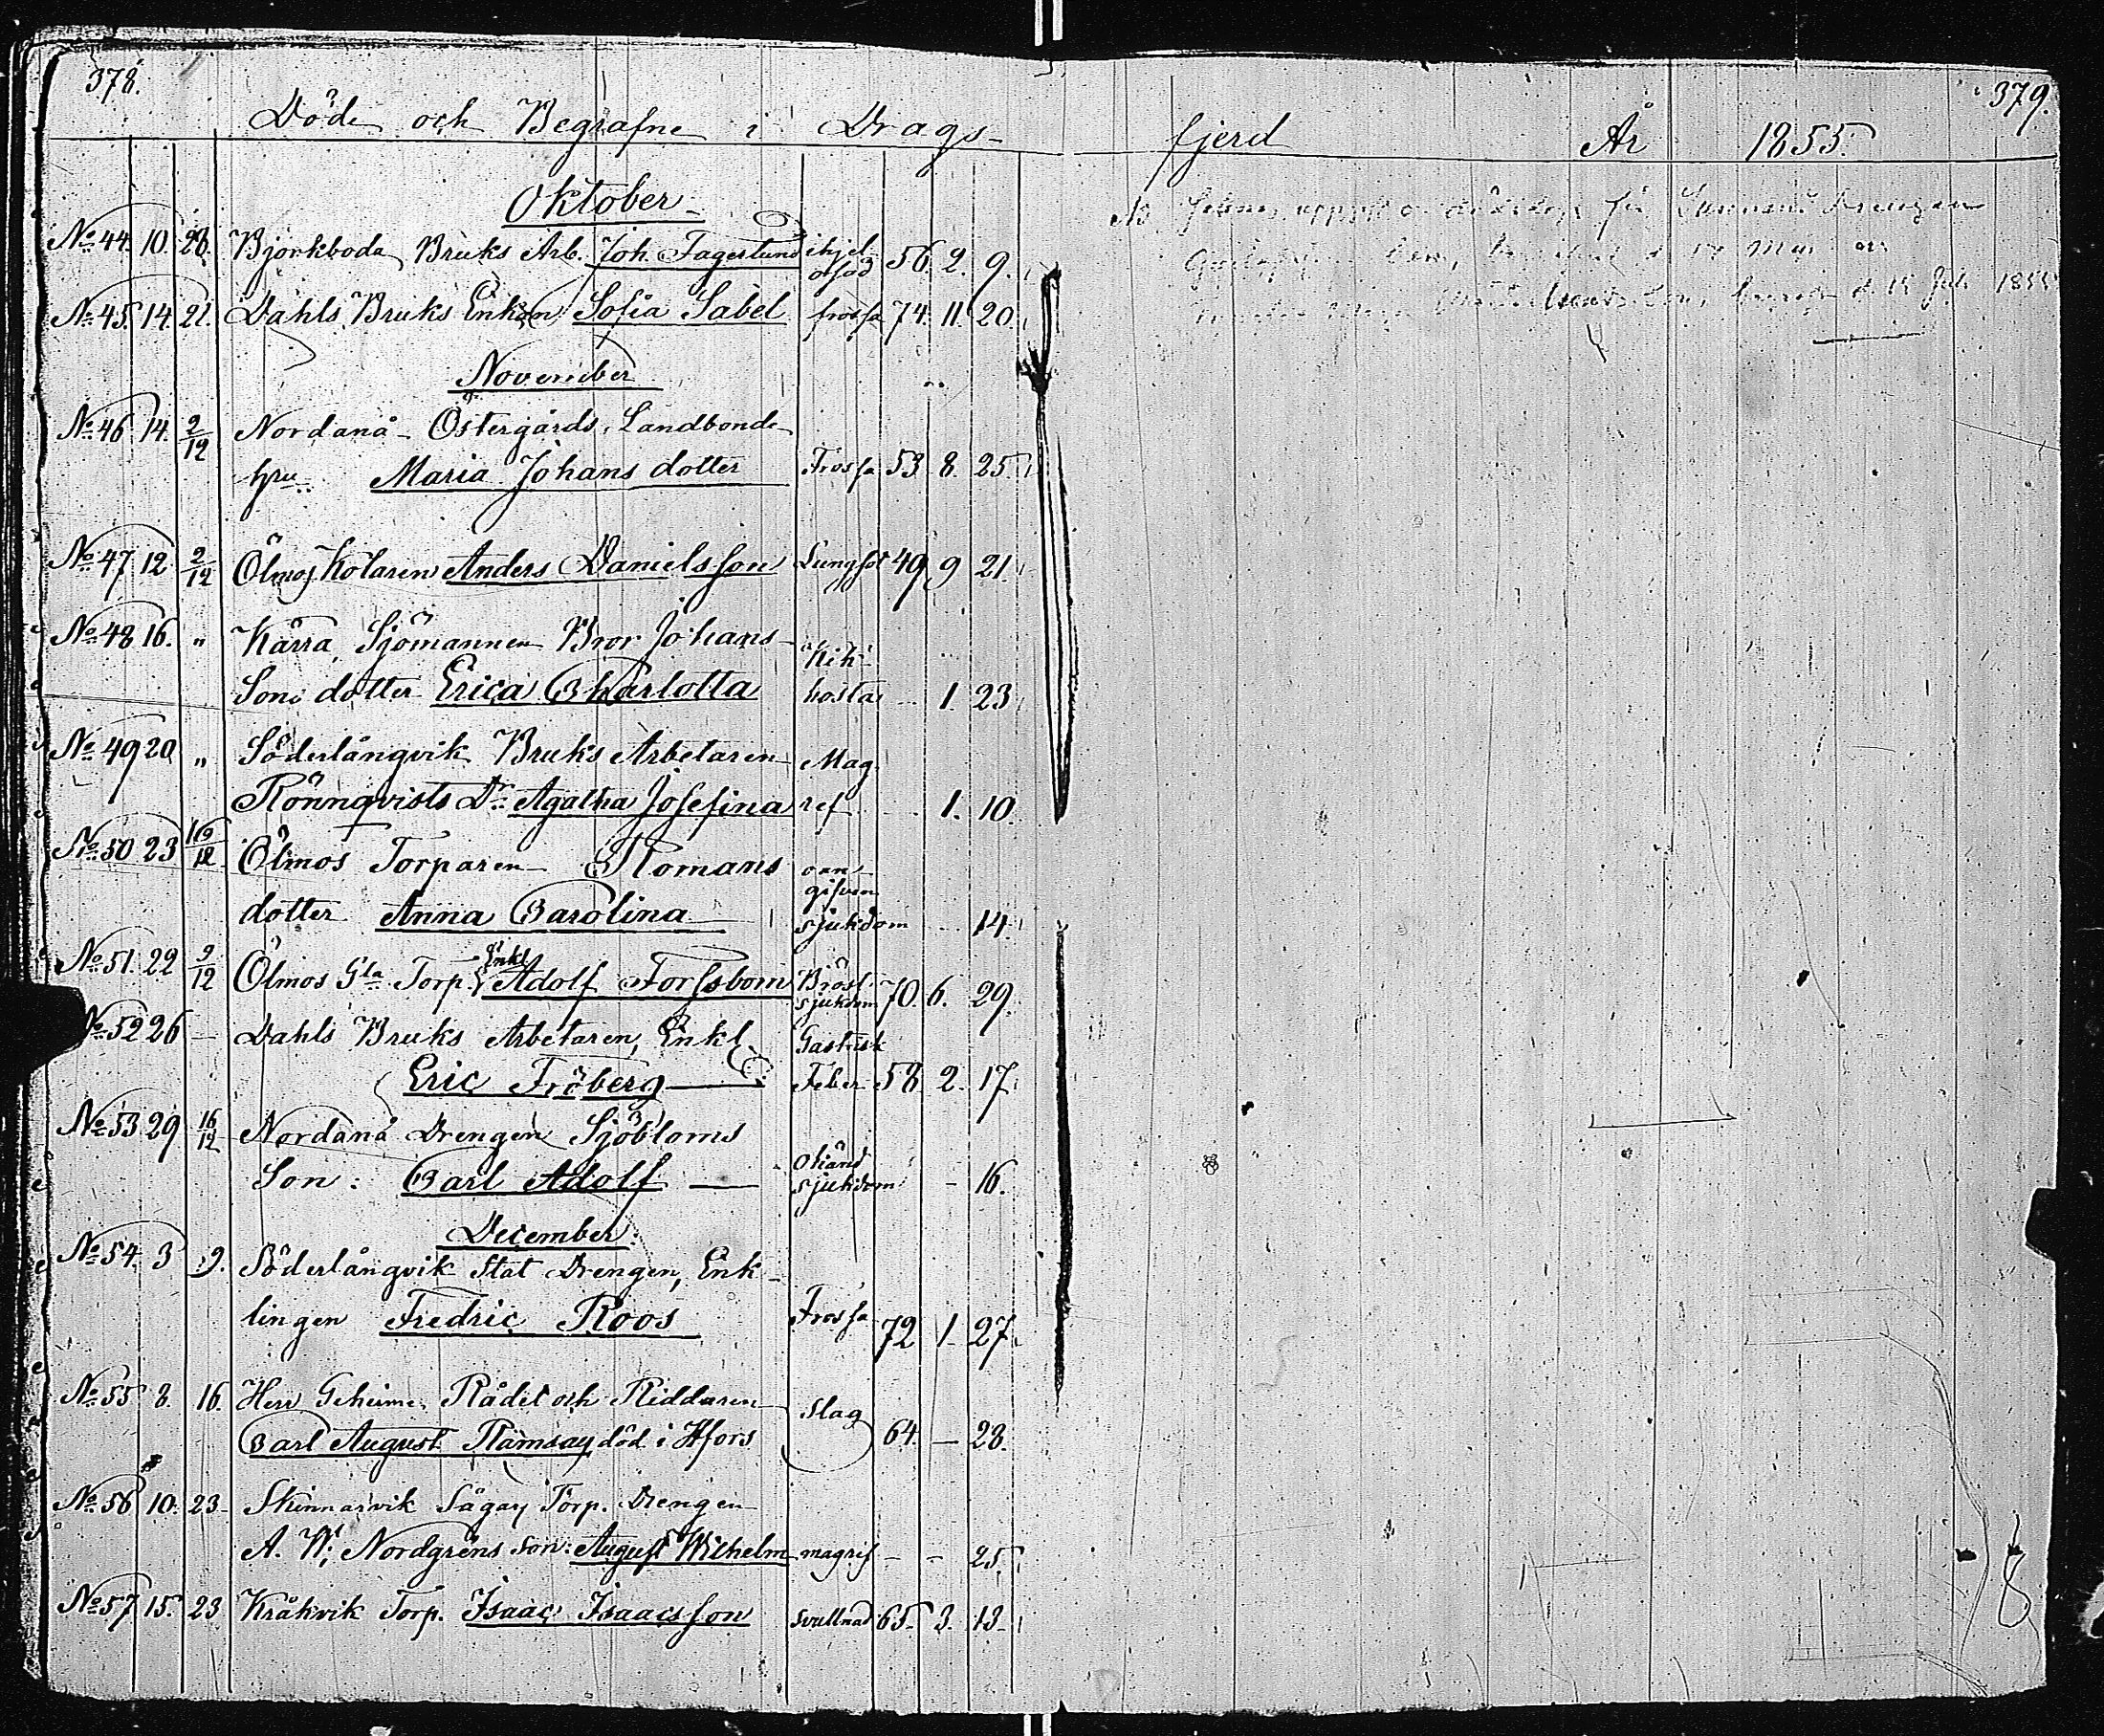 378.
379.
Döde och Begrafne i Drags-
fjerd År 1855.
Oktober
No 44. 10. 28. Björkboda Bruks Arb. Joh. Fagerlund ihjel- 56. 2. 9.
No 45. 14. 21. Dahls Bruks Enkan Sofia Sabel frossa 74. 11. 20.
November
No 46. 14. 2/12 Nordanå Östergårds Landbonde
hru Maria Johans dotter Frossa 53 8 25
No 47 12 2/12 Ölmos Kolaren Anders Danielsson Lungsot 49 9 21.
No 48 16. " Kärra, Sjömannen Bror Johans-
Kik-
Sons dotter Erica Charlotta hosta 1. 23
No 49 20 " Söderlångvik Bruks Arbetaren Mag-
Rönnqvists Dr. Agatha Josefina ref 1. 10.
No 50 23 16/12 Ölmos Torparen Romans oan-
gifven
dotter Anna Carolina sjukdom 14.
No 51. 22 9/12 Ölmos Gla Torp. Enkl Adolf Forssbom Bröst-
sjukdom 70. 6. 29.
No 52 26 — Dahls Bruks Arbetaren, Enkl. Gastrisk
Eric Fröberg Feber 58 2. 17.
No 53 29 16/12 Nordanå Drengen Sjöbloms
Okänd
Son: Carl Adolf — sjukdom - 16.
December.
No 54. 3 9. Söderlångvik Stat Drengen, Enk-
lingen Fredric Roos Frossa 72 1 27.
No 55 8. 16. Herr Geheime Rådet och Riddaren
Slag
Carl August Ramsay död i Hfors 64. — 28.
No 56 10. 23 Skinnarvik Torp. Drengen
A. W. Nordgréns son: August Wilhelm magrif - - 25.
No 57 15. 23 Kråkvik Torp. Isaac Isaacsson svullnad 65. 3. 13
1855
8